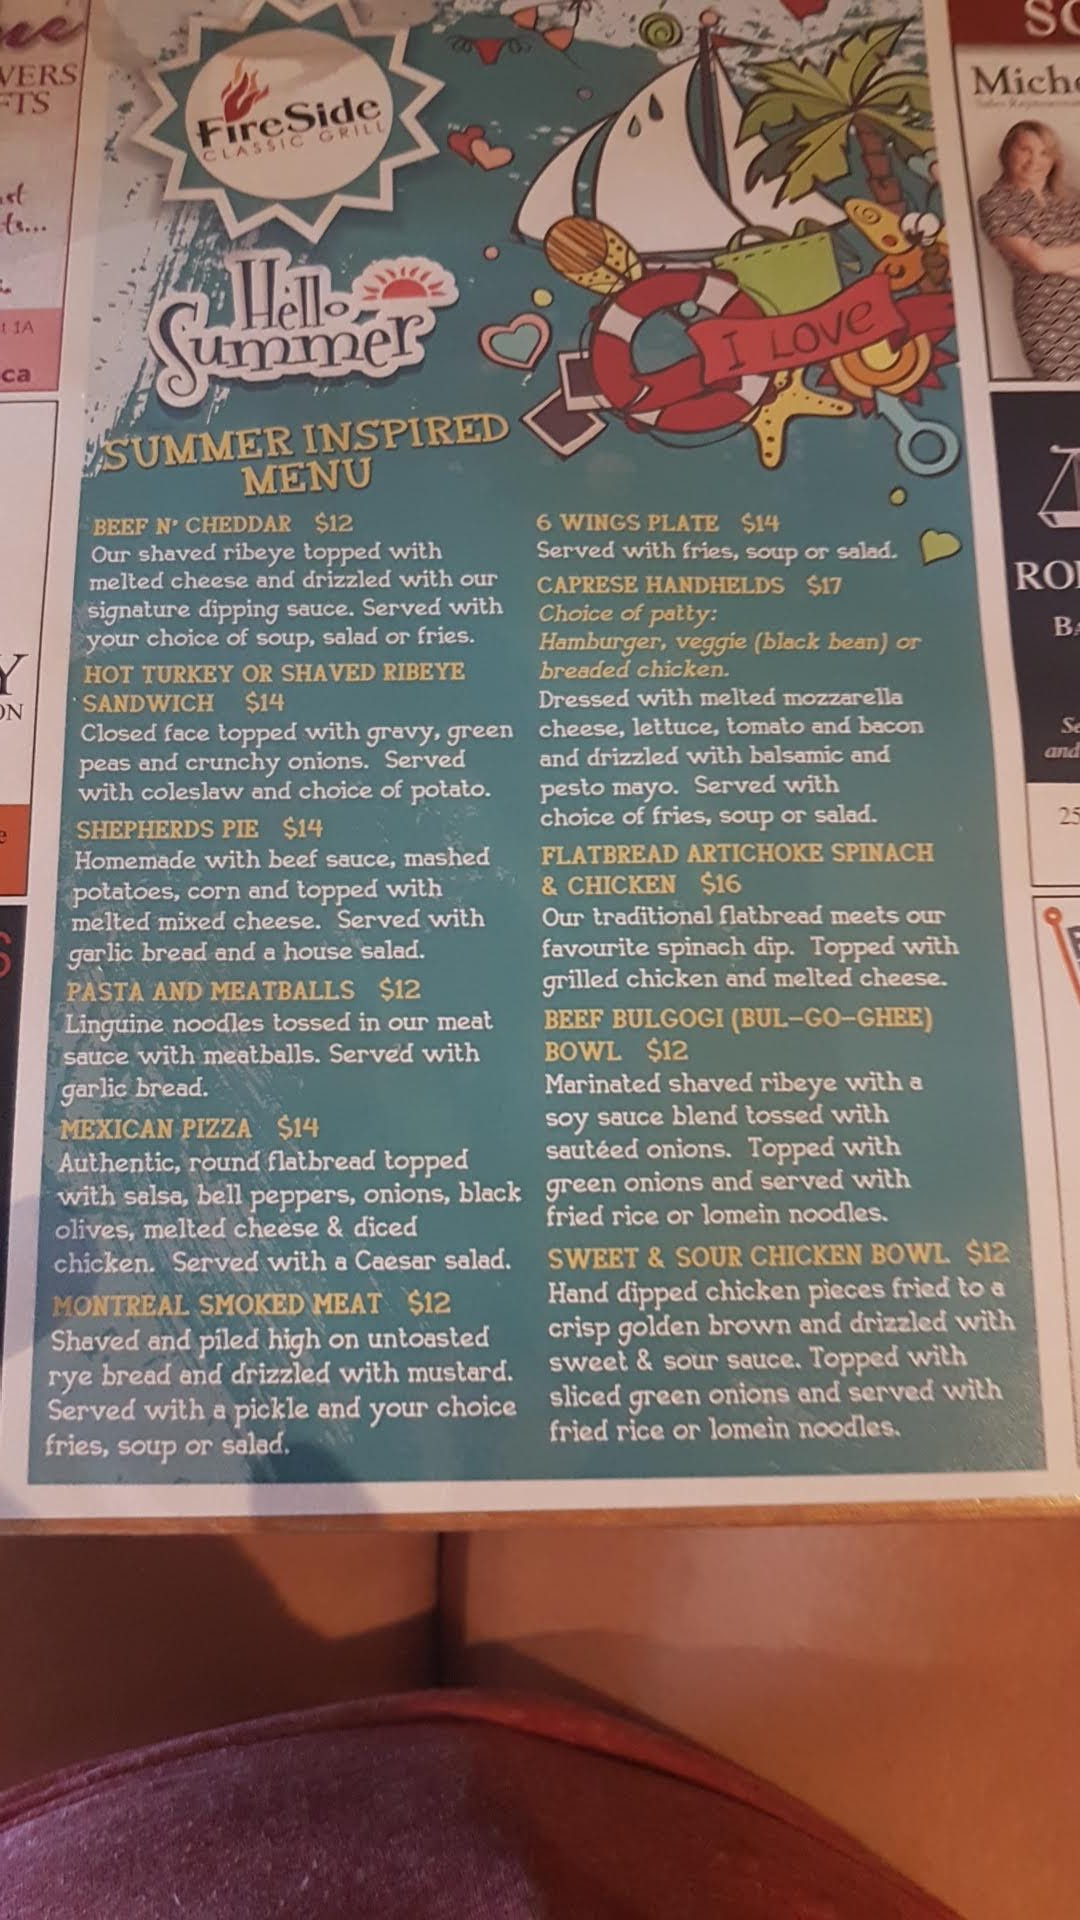 FireSide
CLASSIC GRILL
Hello
Summer
I LOVE
SUMMER INSPIRED
MENU
BEEF N' CHEDDAR $12
Our shaved ribeye topped with
melted cheese and drizzled with our
signature dipping sauce. Served with
your choice of soup, salad or fries.
HOT TURKEY OR SHAVED RIBEYE
SANDWICH $14
Closed face topped with gravy, green
peas and crunchy onions. Served
with coleslaw and choice of potato.
SHEPHERDS PIE $14
Homemade with beef sauce, mashed
potatoes, corn and topped with
melted mixed cheese. Served with
garlic bread and a house salad.
PASTA AND MEATBALLS $12
Linguine noodles tossed in our meat
sauce with meatballs. Served with
garlic bread.
MEXICAN PIZZA $14
Authentic, round flatbread topped
with salsa, bell peppers, onions, black
olives, melted cheese & diced
chicken. Served with a Caesar salad.
MONTREAL SMOKED MEAT $12
Shaved and piled high on untoasted
rye bread and drizzled with mustard.
Served with a pickle and your choice
fries, soup or salad.
6 WINGS PLATE $14
Served with fries, soup or salad.
CAPRESE HANDHELDS $17
Choice of patty:
Hamburger, veggie (black bean) or
breaded chicken.
Dressed with melted mozzarella
cheese, lettuce, tomato and bacon
and drizzled with balsamic and
pesto mayo. Served with
choice of fries, soup or salad.
FLATBREAD ARTICHOKE SPINACH
& CHICKEN $16
Our traditional flatbread meets our
favourite spinach dip. Topped with
grilled chicken and melted cheese.
BEEF BULGOGI (BUL-GO-GHEE)
BOWL $12
Marinated shaved ribeye with a
soy sauce blend tossed with
sautéed onions. Topped with
green onions and served with
fried rice or lomein noodles.
SWEET & SOUR CHICKEN BOWL $12
Hand dipped chicken pieces fried to a
crisp golden brown and drizzled with
sweet & sour sauce. Topped with
sliced green onions and served with
fried rice or lomein noodles.